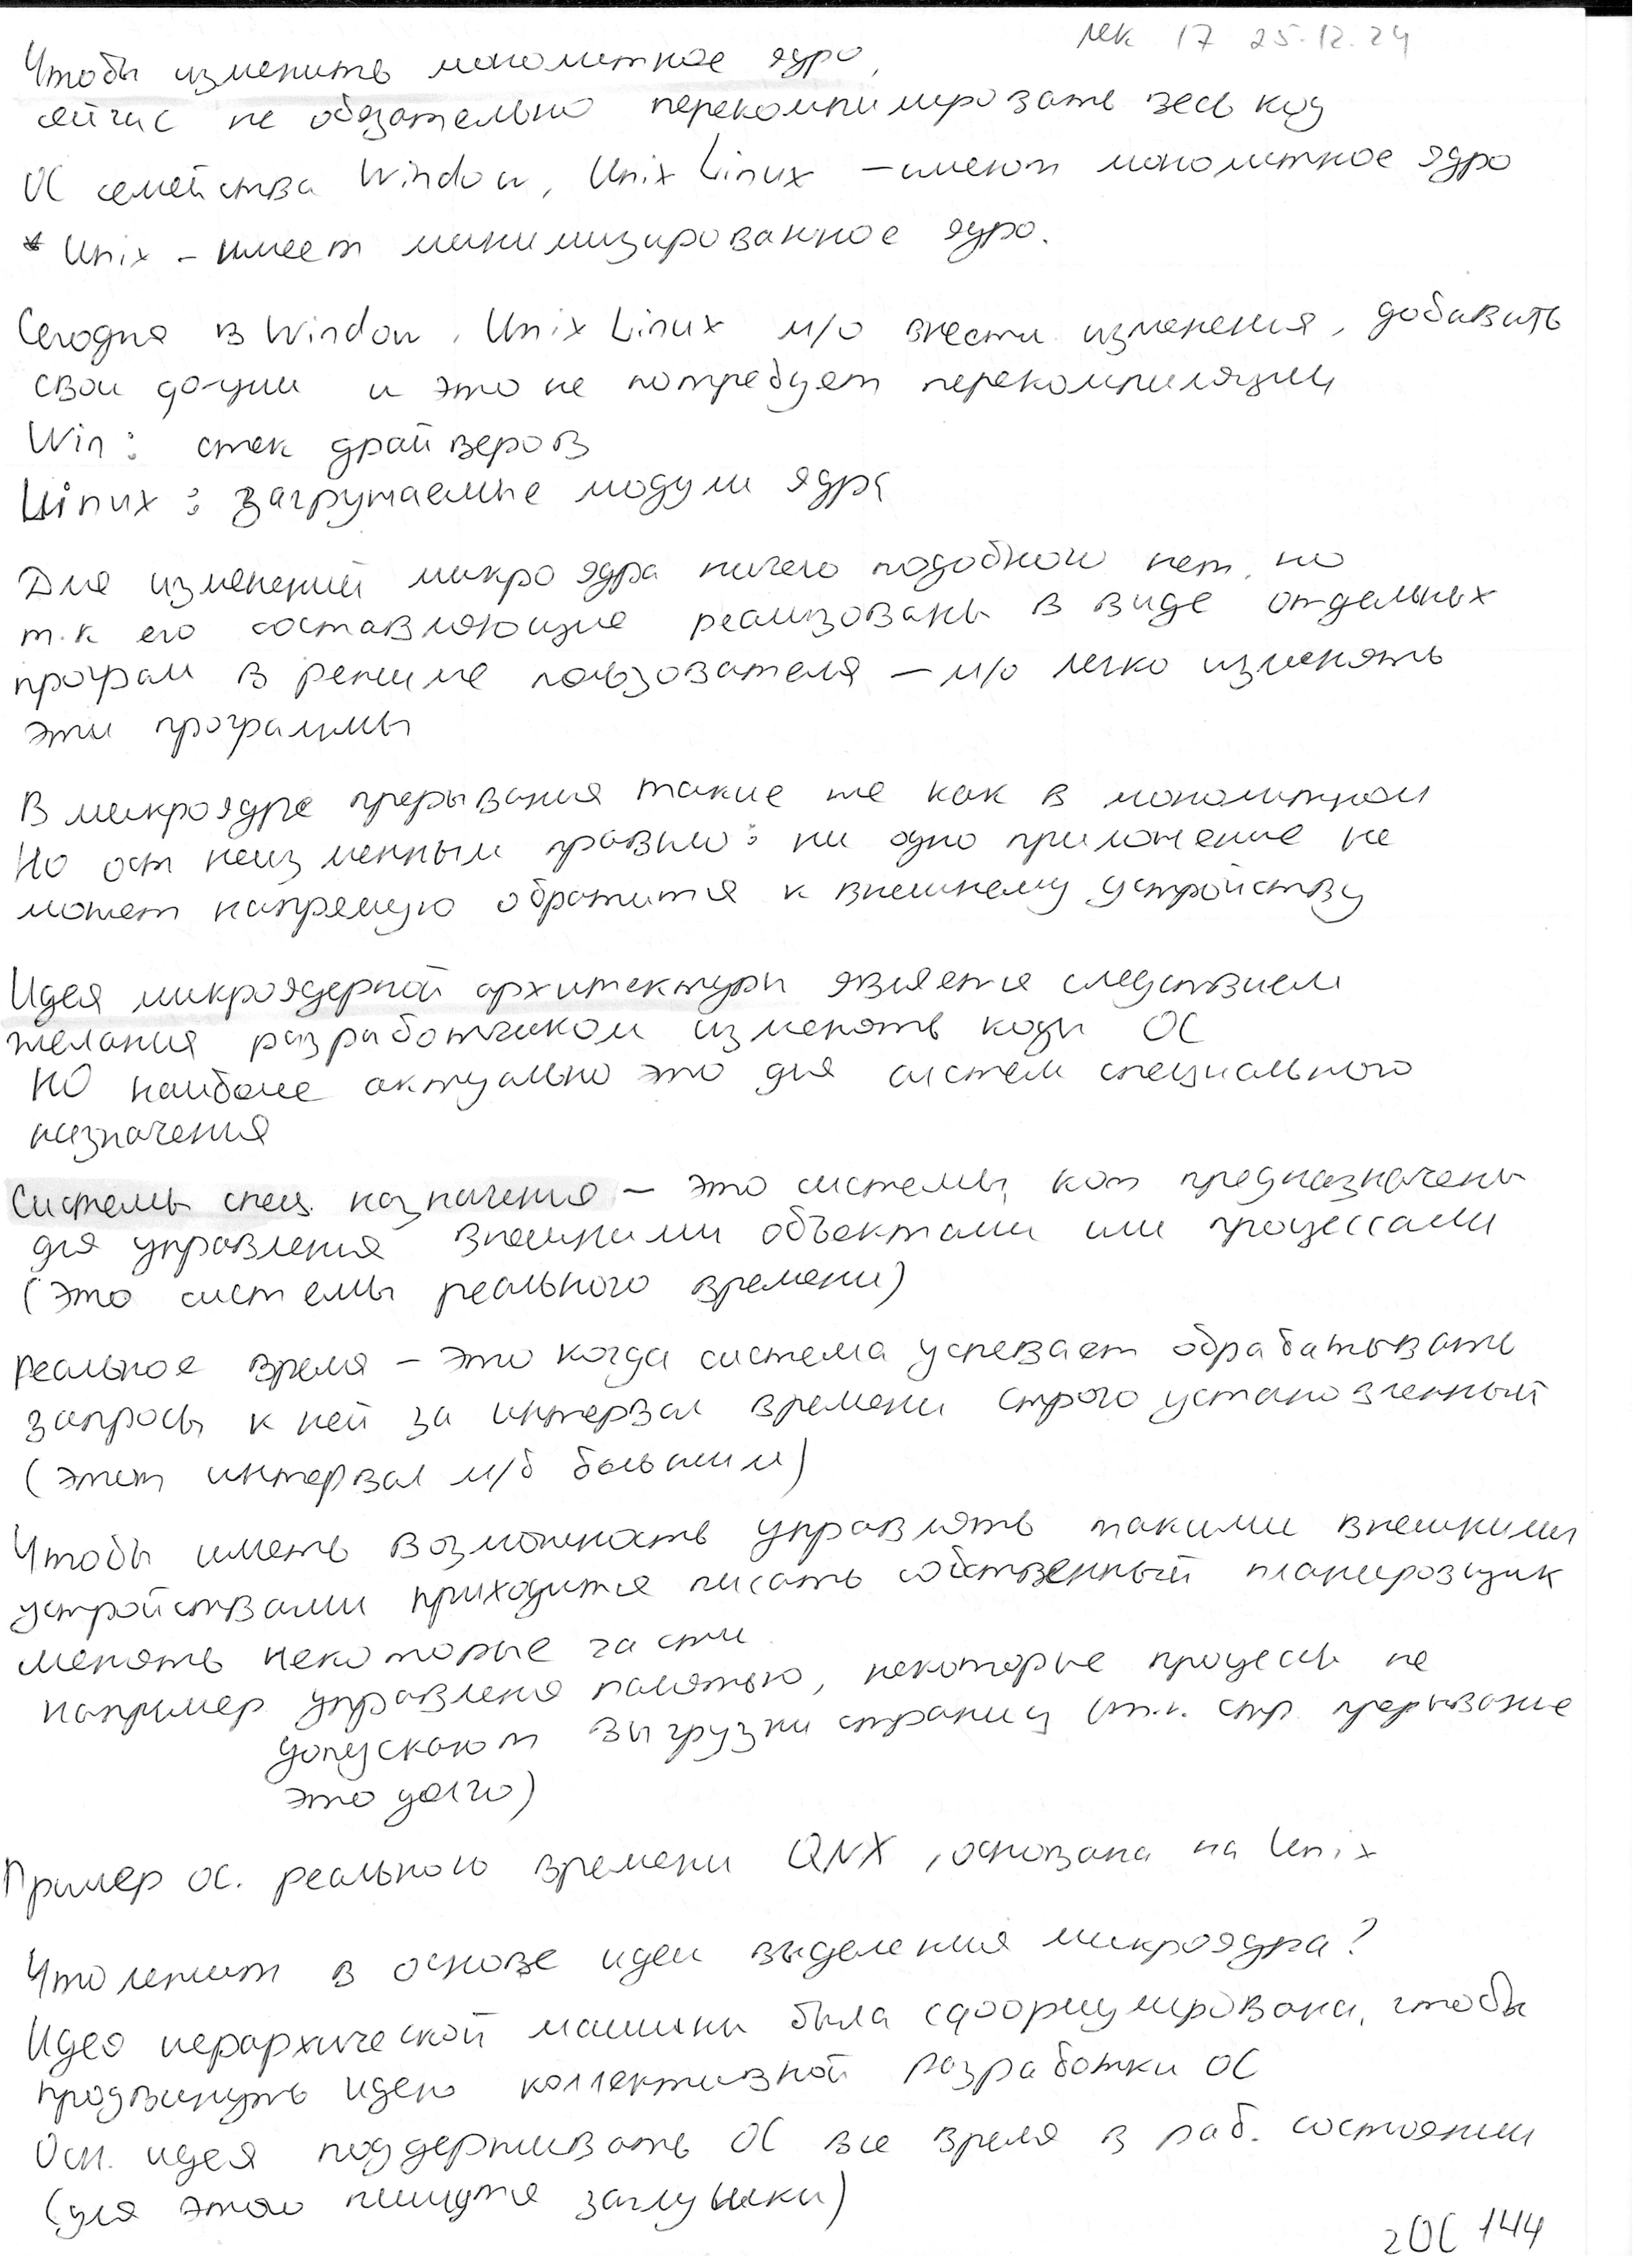 лек 17 25.12.24
Чтобы изменить монолитное ядро,
сейчас не обязательно перекомпилировать весь код
ОС семейства Window, Unix Linux – имеют монолитное ядро
* Unix – имеет минимизированное ядро.
Сегодня в Window, Unix Linux м/о внести изменения, добавить
свои ф-ции и это не потребует перекомпиляции
Win: стек драйверов
Linux: загружаемые модули ядра
Для изменений микроядра ничего подобного нет, но
т.к его составляющие реализованы в виде отдельных
програм в режиме пользователя – м/о легко изменять
эти программы
В микроядре прерывания такие же как в монолитном
Но ост неизменным правило: ни одно приложение не
может напрямую обратится к внешнему устройству
Идея микроядерной архитектуры является следствием
желания разработчиком изменять коды ОС
НО наиболее актуально это для систем специального
назначения
Системы спец. назначения – это системы, кот предназначены
для управления внешними объектами или процессами
(это системы реального времени)
Реальное время – это когда система успевает обрабатывать
запросы к ней за интервал времени строго установленный
(этот интервал м/б большим)
Чтобы иметь возможность управлять такими внешними
устройствами приходится писать собственный планировщик
менять некоторые части
например управления памятью, некоторые процессы не
допускают выгрузки страниц (т.к. стр. прерывание
это долго)
Пример ос. реального времени QNX, основана на Unix
Что лежит в основе идеи выделения микроядра?
Идея иерархической машины была сформулирована, чтобы
продвинуть идею коллективной разработки ОС
Осн. идея поддерживать ОС все время в раб. состоянии
(для этого пишутся заглушки)
2ОС 144